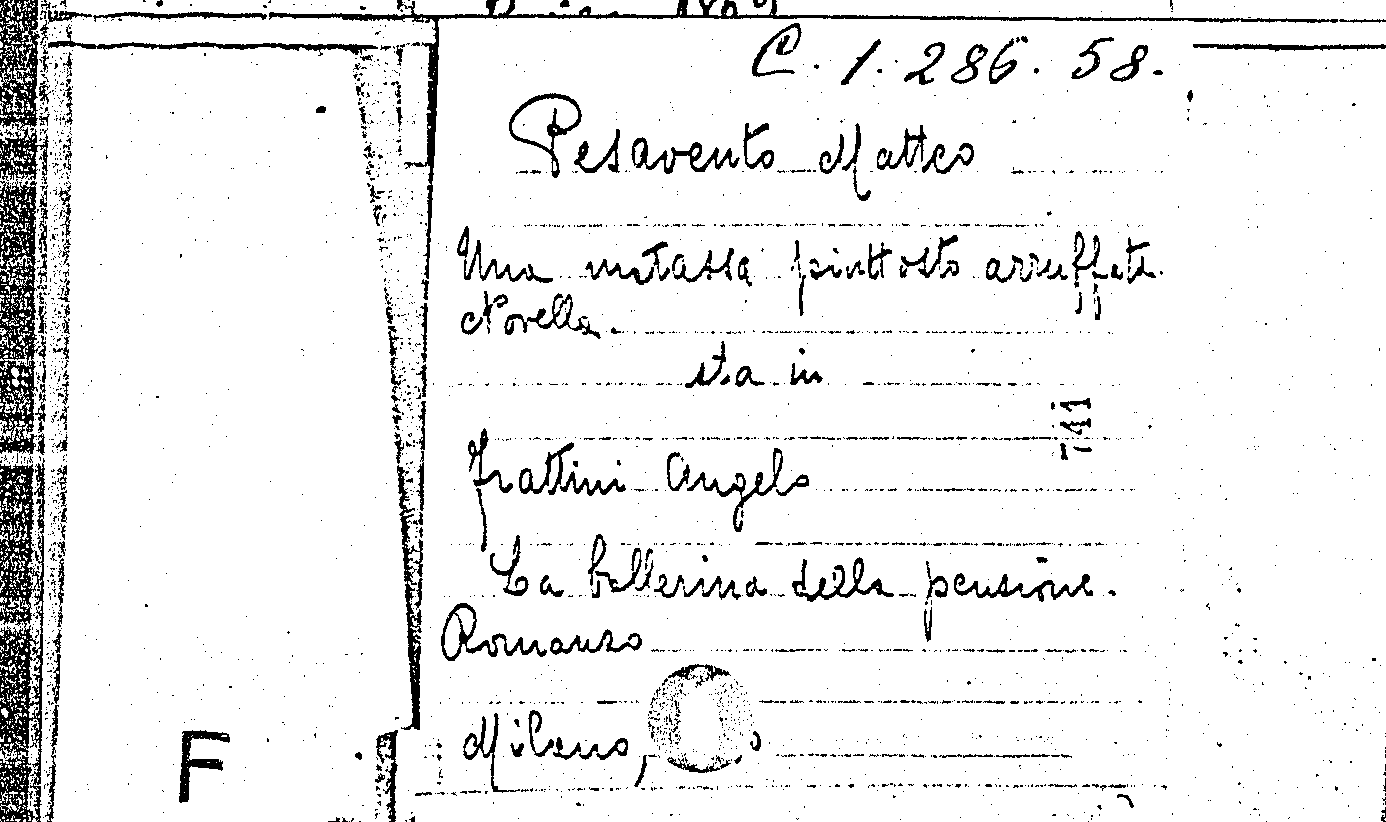 C. 1. 286. 58.
Pesavento Matteo
Una matassa piuttosto arruffata.
Novella.
sta in
741
Frattini Angelo
La ballerina della pensione.
Romanzo
Milano,
F